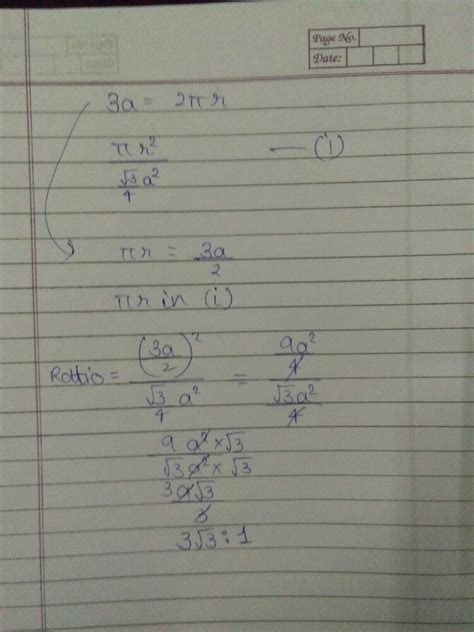 Page No.
Date:
3a = 2πr
πr² / (√3/4 a²) — (i)
πr = 3a/2
πr in (i)
Ratio = (3a/2)² / (√3/4 a²) = (9a²/4) / (√3a²/4)
9 a² × √3 / √3 a² × √3
3 9√3 / 3
3√3 : 1